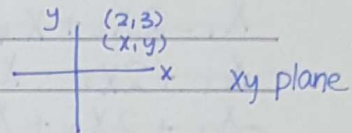 y (2,3)
(x,y)
x xy plane